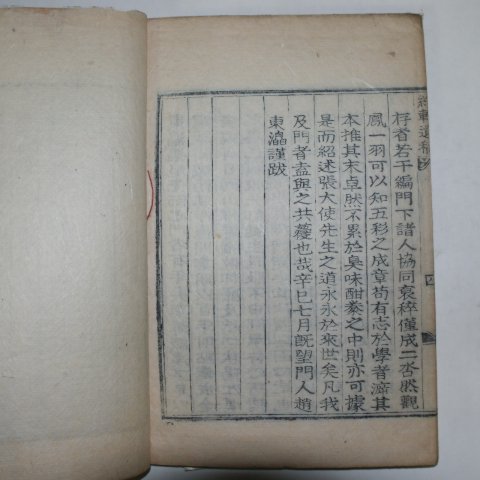 存者若干編門下諸人協同裒稡僅成二沓然觀
鳳一羽可以知五彩之成章苟有志於學者泝其
本推其末卓然不累於臭味酣豢之中則亦可據
是而紹述張大使先生之道永永於來世矣凡我
及門者盍與之共蘉也哉辛巳七月旣望門人趙
東瀹謹跋